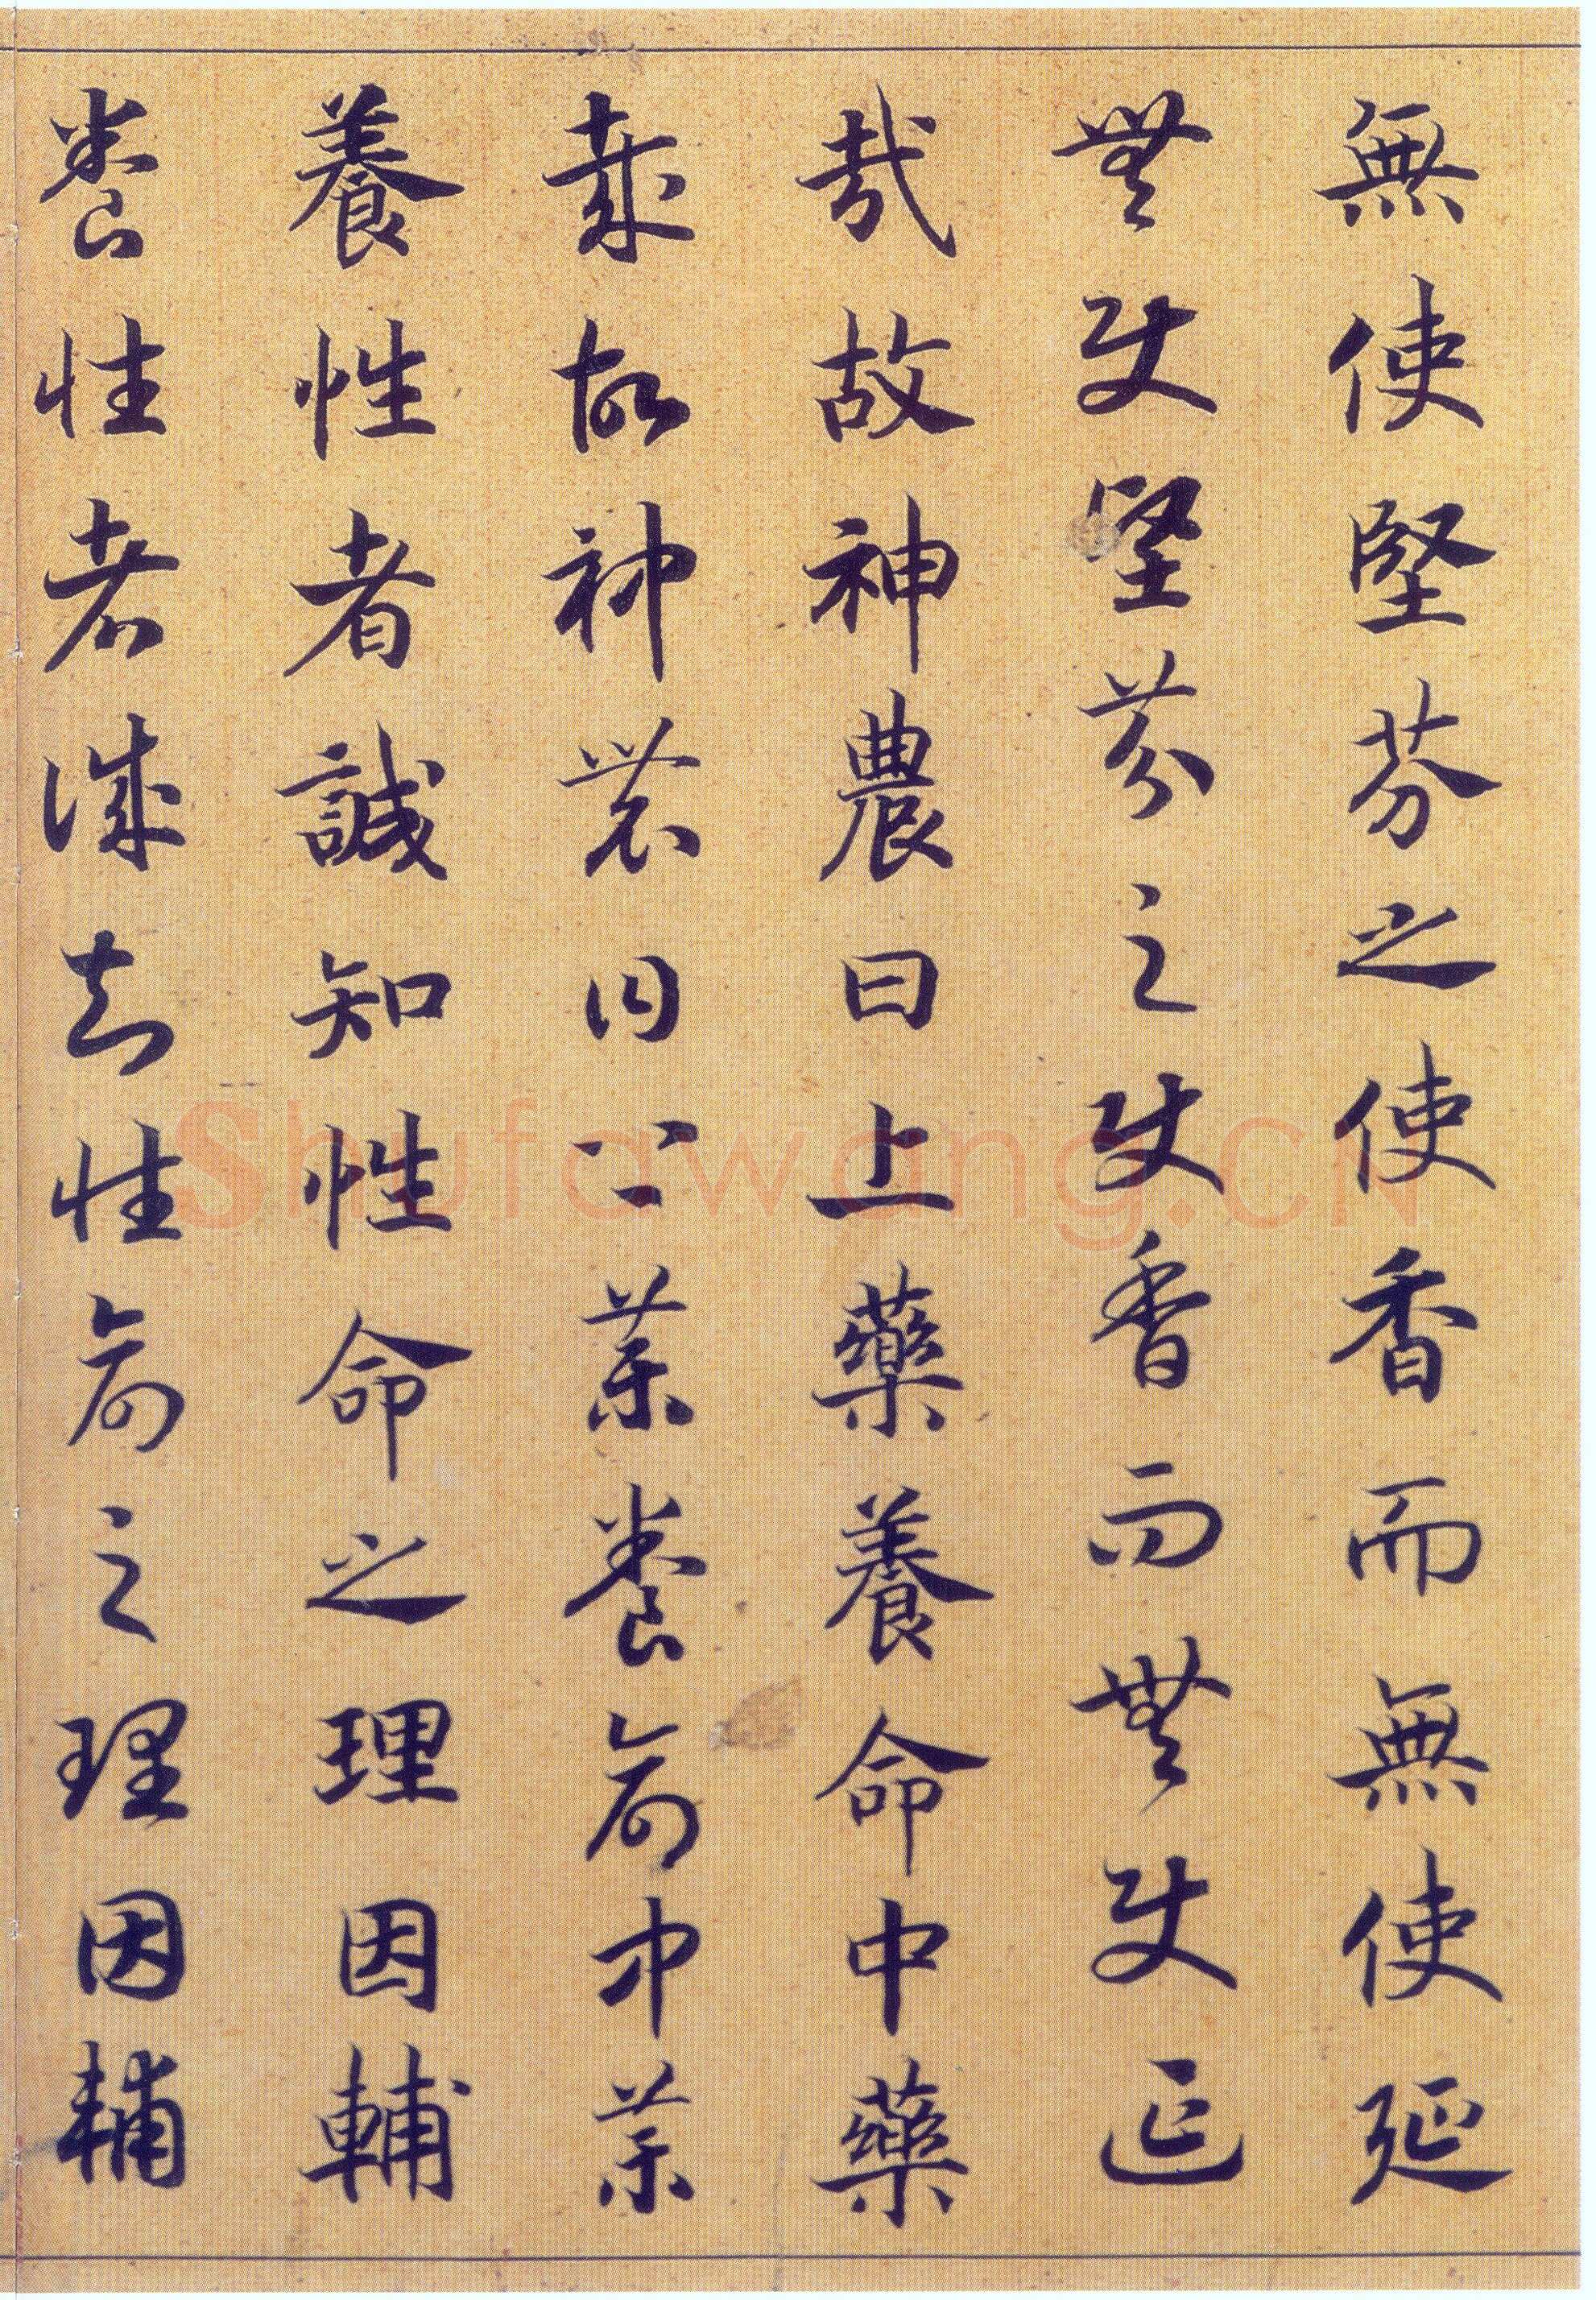 無使堅芬之使香而無使延
無使堅芬之使香而無使延
哉故神農曰上藥養命中藥
哉故神農曰上藥養命中藥
養性者誠知性命之理因輔
養性者誠知性命之理因輔
Shufawang.CN